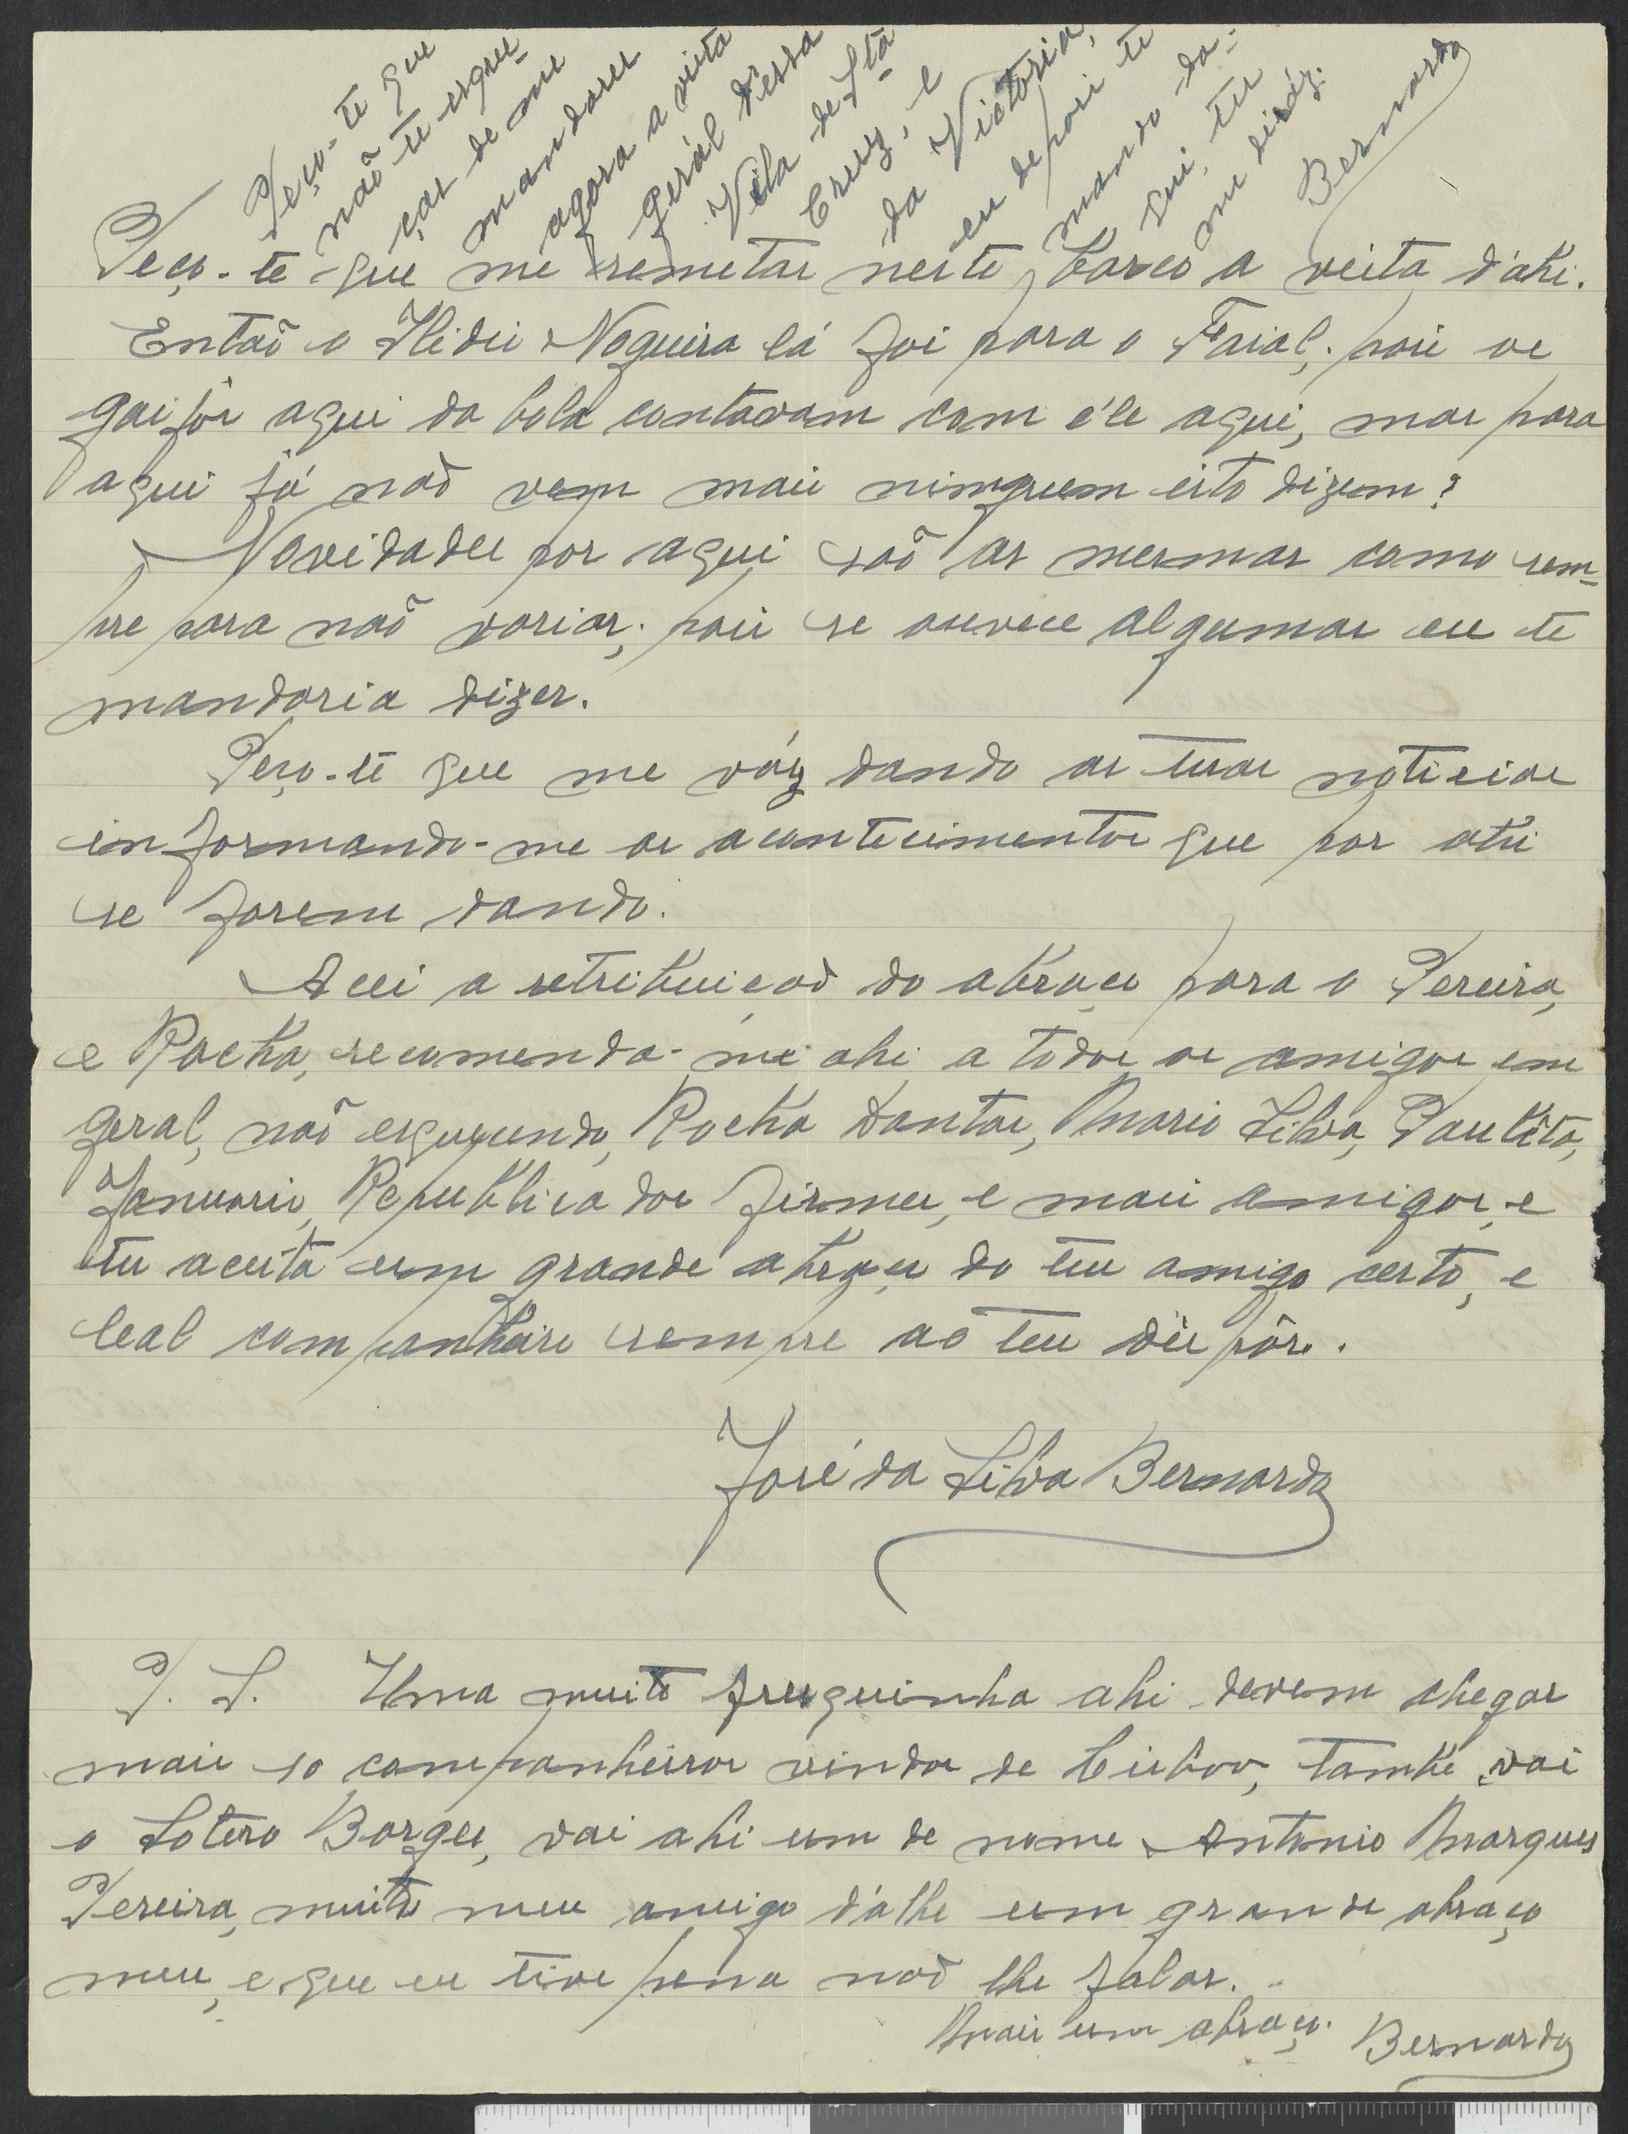 Peço-te que
não te esque-
ças de me
mandares
agora a vista
geral dessa
Vila de Stª
Cruz, e
da Victoria,
eu depois te
mando da-
qui, tu
me dirás.
Bernardo
Peço-te que me remetas neste barco a vista d'ahi.
Entaõ o Ilidio Nogueira lá foi para o Faial, pois os
gaijos aqui da bola contavam com ele aqui, mas para
aqui já naõ vem mais ninguem isto dizem?
Novidades por aqui saõ as mesmas como sem-
pre para naõ variar, pois se ouvece algumas eu te
mandaria dizer.
Peço-te que me váz dando as tuas noticias
informando-me os acontecimentos que por ahi
se forem dando.
Acei a retribuiçaõ do abraço para o Pereira,
e Rocha, recomenda-me ahi a todos os amigos em
geral, naõ esquecendo, Rocha Dantas, Mario Silva, Paulito,
Januario, Republica dos firmes, e mais amigos, e
tu aceita um grande abraço do teu amigo certo, e
leal companheiro sempre ao teu dispôr.
José da Silva Bernardo
P. S. Uma muito fresquinha ahi devem chegar
mais 10 companheiros vindos de Lisboa, també vai
o Sotero Borges, vai ahi um de nome Antonio Marques
Pereira, muito meu amigo dálhe um grande abraço
meu, e que eu tive pena naõ lhe falar.
Mais um abraço. Bernardo